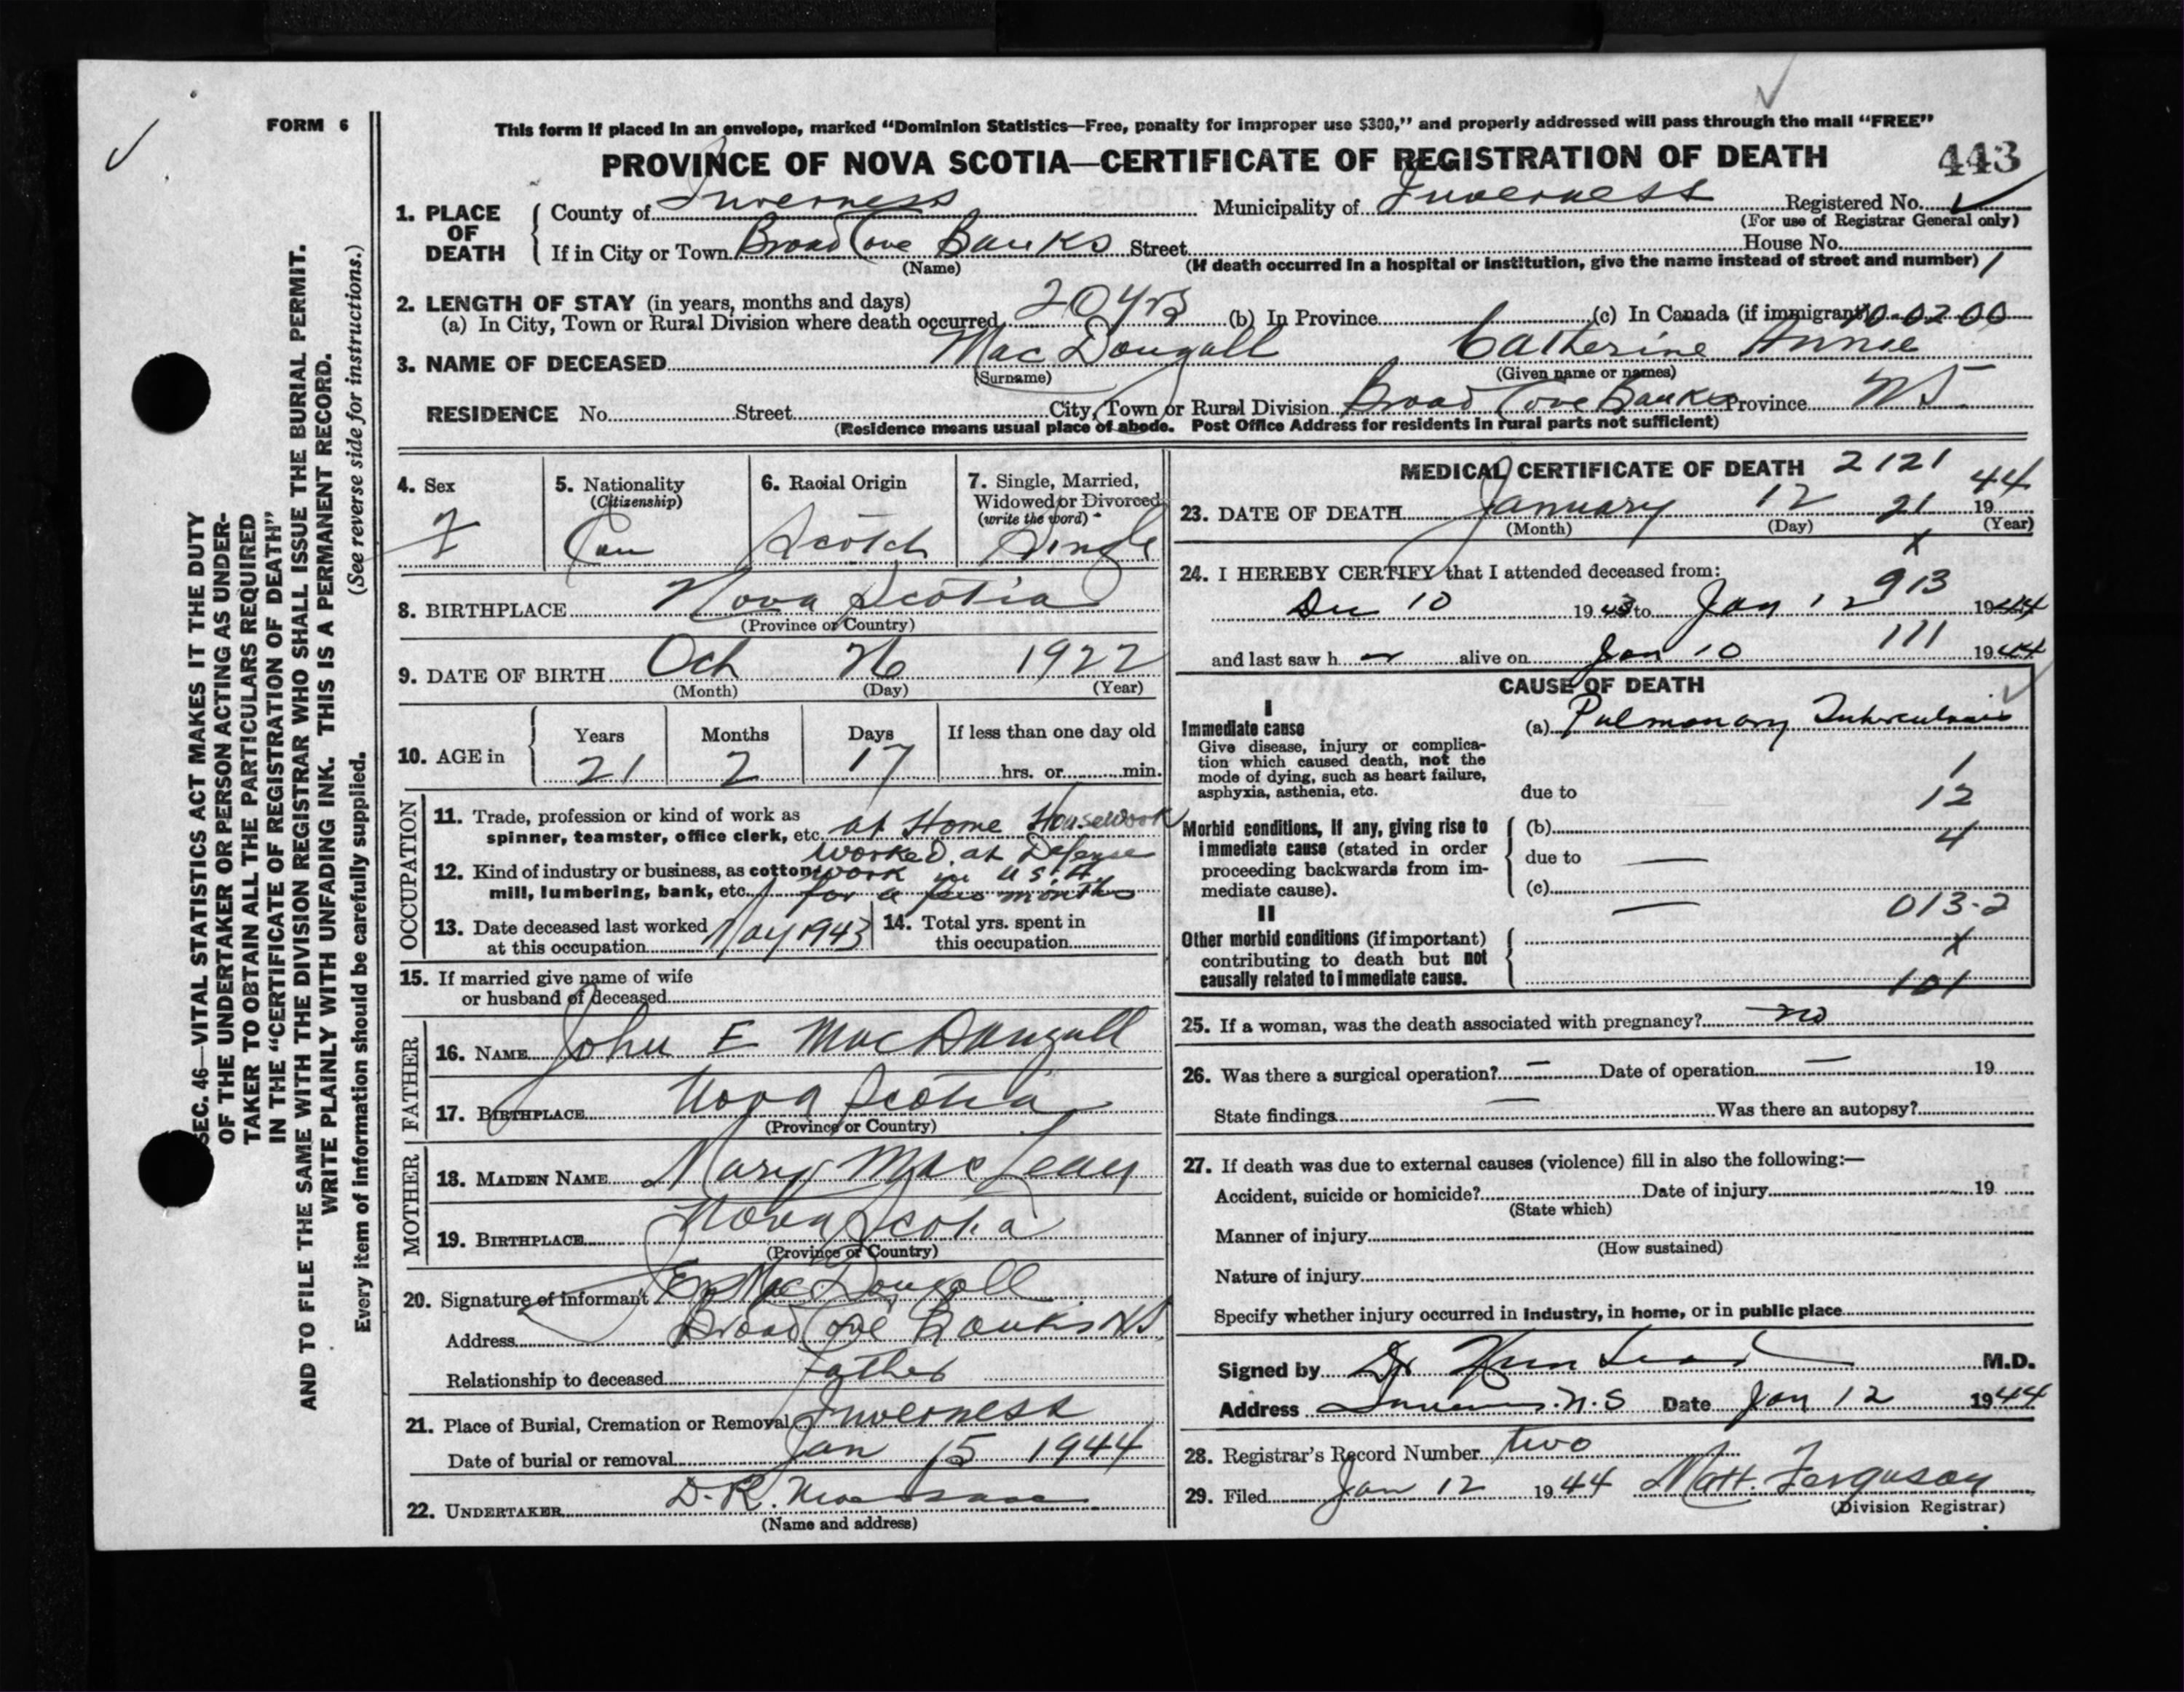 FORM 6
This form if placed in an envelope, marked “Dominion Statistics—Free, penalty for improper use $300,” and properly addressed will pass through the mail “FREE”
PROVINCE OF NOVA SCOTIA—CERTIFICATE OF REGISTRATION OF DEATH
443
1. PLACE OF DEATH
County of Inverness Municipality of Inverness Registered No.
(For use of Registrar General only)
If in City or Town Broad Cove Banks Street House No.
(Name) (If death occurred in a hospital or institution, give the name instead of street and number) 1
2. LENGTH OF STAY (in years, months and days)
(a) In City, Town or Rural Division where death occurred 20 yrs (b) In Province (c) In Canada (if immigrant) 10-02-00
3. NAME OF DECEASED MacDougall Catherine Annie
(Surname) (Given name or names)
RESIDENCE No. Street City, Town or Rural Division Broad Cove Banks Province NS
(Residence means usual place of abode. Post Office Address for residents in rural parts not sufficient)
4. Sex
F
5. Nationality
(Citizenship)
Can
6. Racial Origin
Scotch
7. Single, Married,
Widowed or Divorced
(write the word)
Single
8. BIRTHPLACE Nova Scotia
(Province or Country)
9. DATE OF BIRTH Oct 26 1922
(Month) (Day) (Year)
10. AGE in
Years Months Days If less than one day old
21 2 17 hrs. or min.
OCCUPATION
11. Trade, profession or kind of work as
spinner, teamster, office clerk, etc. at Home Housework
worked at Defense
12. Kind of industry or business, as cotton work in U.S.A.
mill, lumbering, bank, etc. for a few months
13. Date deceased last worked
at this occupation May 1943
14. Total yrs. spent in
this occupation
15. If married give name of wife
or husband of deceased
FATHER
16. NAME John E MacDougall
17. BIRTHPLACE Nova Scotia
(Province or Country)
MOTHER
18. MAIDEN NAME Mary MacLean
19. BIRTHPLACE Nova Scotia
(Province or Country)
20. Signature of informant MacDougall
Address Broad Cove Banks NS
Relationship to deceased Father
21. Place of Burial, Cremation or Removal Inverness
Date of burial or removal Jan 15 1944
22. UNDERTAKER D. R. MacIsaac
(Name and address)
MEDICAL CERTIFICATE OF DEATH 2121
23. DATE OF DEATH January 12 21 1944
(Month) (Day) (Year)
x
24. I HEREBY CERTIFY that I attended deceased from:
913
Dec 10 1943 to Jan 12 1944
111
and last saw h er alive on Jan 10 1944
CAUSE OF DEATH
I
Immediate cause
Give disease, injury or complica-
tion which caused death, not the
mode of dying, such as heart failure,
asphyxia, asthenia, etc.
(a) Pulmonary Tuberculosis
1
due to
12
Morbid conditions, if any, giving rise to
immediate cause (stated in order
proceeding backwards from im-
mediate cause).
(b)
4
due to
(c)
013-2
II
Other morbid conditions (if important)
contributing to death but not
causally related to immediate cause.
x
101
25. If a woman, was the death associated with pregnancy? no
26. Was there a surgical operation? — Date of operation — 19
State findings — Was there an autopsy?
27. If death was due to external causes (violence) fill in also the following:—
Accident, suicide or homicide? Date of injury 19
(State which)
Manner of injury
(How sustained)
Nature of injury
Specify whether injury occurred in industry, in home, or in public place
Signed by Dr M.D.
Address N.S Date Jan 12 1944
28. Registrar's Record Number two
29. Filed Jan 12 1944 Matt. Ferguson
(Division Registrar)
SEC. 46—VITAL STATISTICS ACT MAKES IT THE DUTY
OF THE UNDERTAKER OR PERSON ACTING AS UNDER-
TAKER TO OBTAIN ALL THE PARTICULARS REQUIRED
IN THE “CERTIFICATE OF REGISTRATION OF DEATH”
AND TO FILE THE SAME WITH THE DIVISION REGISTRAR WHO SHALL ISSUE THE BURIAL PERMIT.
WRITE PLAINLY WITH UNFADING INK. THIS IS A PERMANENT RECORD.
Every item of information should be carefully supplied. (See reverse side for instructions.)